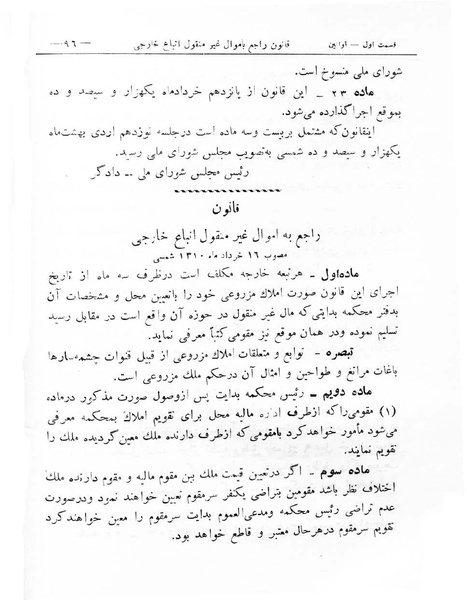 قسمت اول — قوانین    قانون راجع باموال غیر منقول اتباع خارجی    — ۹٦ —
شورای ملی منسوخ است.
ماده ۲۳ – این قانون از پانزدهم خردادماه یکهزار و سیصد و ده
بموقع اجرا گذارده می‌شود.
اینقانون که مشتمل بر بیست وسه ماده است در جلسه نوزدهم اردی بهشت ماه
یکهزار و سیصد و ده شمسی به‌تصویب مجلس شورای ملی رسید.
رئیس مجلس شورای ملی – دادگر
قانون
راجع به اموال غیر منقول اتباع خارجی
مصوب ۱٦ خرداد ماه ۱۳۱۰ شمسی
ماده‌اول – هر تبعه خارجه مکلف است در ظرف سه ماه از تاریخ
اجرای این قانون صورت املاک مزروعی خود را باتعیین محل و مشخصات آن
بدفتر محکمه بدایتی که مال غیر منقول در حوزه آن واقع است در مقابل رسید
تسلیم نموده ودر همان موقع نیز مقومی کتباً معرفی نماید.
تبصره – توابع و متعلقات املاک مزروعی از قبیل قنوات چشمه‌سارها
باغات مراتع و طواحین و امثال آن در حکم ملک مزروعی است.
ماده دویم – رئیس محکمه بدایت پس از وصول صورت مذکور در ماده
(۱) مقومی را که از طرف اداره مالیه محل برای تقویم املاک بمحکمه معرفی
می‌شود مأمور خواهد کرد بامقومی که از طرف دارنده ملک معین گردیده ملک را
تقویم نمایند.
ماده سوم – اگر در تعیین قیمت ملک بین مقوم مالیه و مقوم دارنده ملک
اختلاف نظر باشد مقومین بتراضی یکنفر سرمقوم تعیین خواهند نمود و در صورت
عدم تراضی رئیس محکمه و مدعی‌العموم بدایت سرمقوم را معین خواهند کرد
تقویم سرمقوم در هر حال معتبر و قاطع خواهد بود.